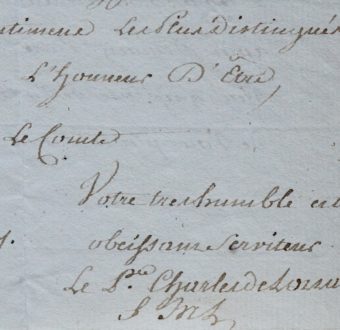 timens Les Plus distingués
L'honneur D'Être,
Le Comte
Votre tres humble et
obeissant Serviteur
Le P.ce Charles de